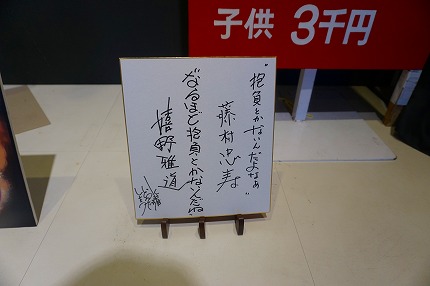 子供 3千円
“抱負とかないんだよなぁ”
藤村忠寿
“なるほど抱負とかないんだね”
嬉野雅道